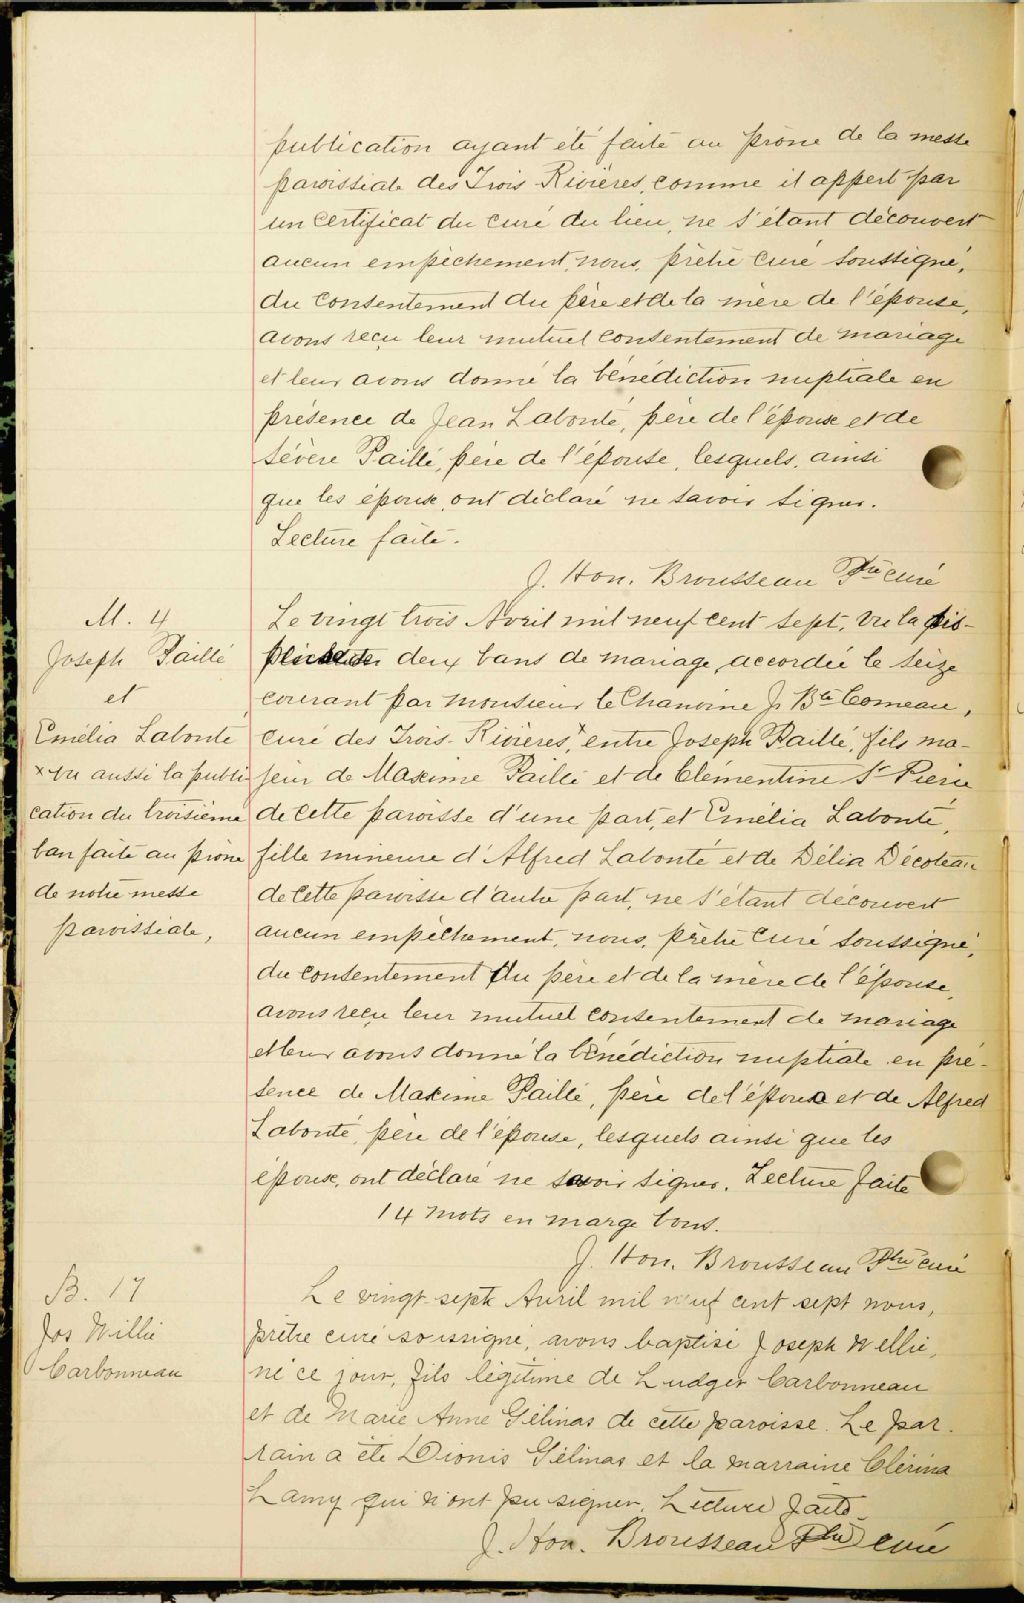 publication ayant été faite au prône de la messe
paroissiale des Trois-Rivières, comme il appert par
un certificat du curé du lieu, ne s'étant découvert
aucun empêchement, nous, prêtre curé soussigné,
du consentement du père et de la mère de l'épouse,
avons reçu leur mutuel consentement de mariage
et leur avons donné la bénédiction nuptiale en
présence de Jean Labonté, père de l'époux et de
Sévère Paillé, père de l'épouse, lesquels, ainsi
que les époux, ont déclaré ne savoir signer.
Lecture faite.
J. Hon. Brousseau Ptre curé
M. 4
Joseph Paillé
et
Emélia Labonté
x vu aussi la publi-
cation du troisième
ban faite au prône
de notre messe
paroissiale,
Le vingt trois Avril mil neuf cent sept, vu la dis-
deux bans de mariage, accordée le seize
courant par monsieur le Chanoine J. Bte Comeau,
curé des Trois-Rivières,x entre Joseph Paillé, fils ma-
jeur de Maxime Paillé et de Clémentine St Pierre
de cette paroisse d'une part, et Emélia Labonté,
fille mineure d'Alfred Labonté et de Délia Décoteau
de cette paroisse d'autre part, ne s'étant découvert
aucun empêchement, nous, prêtre curé soussigné,
du consentement du père et de la mère de l'épouse,
avons reçu leur mutuel consentement de mariage
et leur avons donné la bénédiction nuptiale en pré-
sence de Maxime Paillé, père de l'époux et de Alfred
Labonté, père de l'épouse, lesquels ainsi que les
époux, ont déclaré ne savoir signer. Lecture faite
14 mots en marge bons.
J. Hon. Brousseau Ptre curé
B. 17
Jos Willie
Carbonneau
Le vingt-sept Avril mil neuf cent sept nous,
prêtre curé soussigné, avons baptisé Joseph Willie,
né ce jour, fils légitime de Ludger Carbonneau
et de Marie Anne Gélinas de cette paroisse. Le par-
rain a été Dionis Gélinas et la marraine Clérina
Lamy qui n'ont pu signer. Lecture faite.
J. Hon. Brousseau Ptre curé